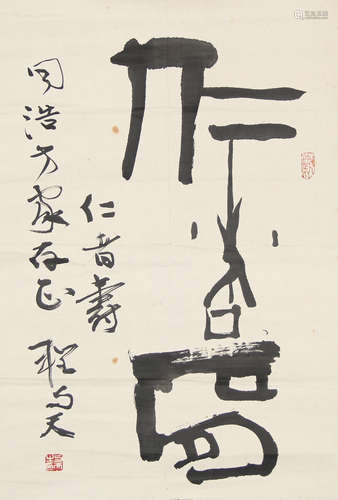 仁者寿
仁者寿
同浩方家存正
程与天